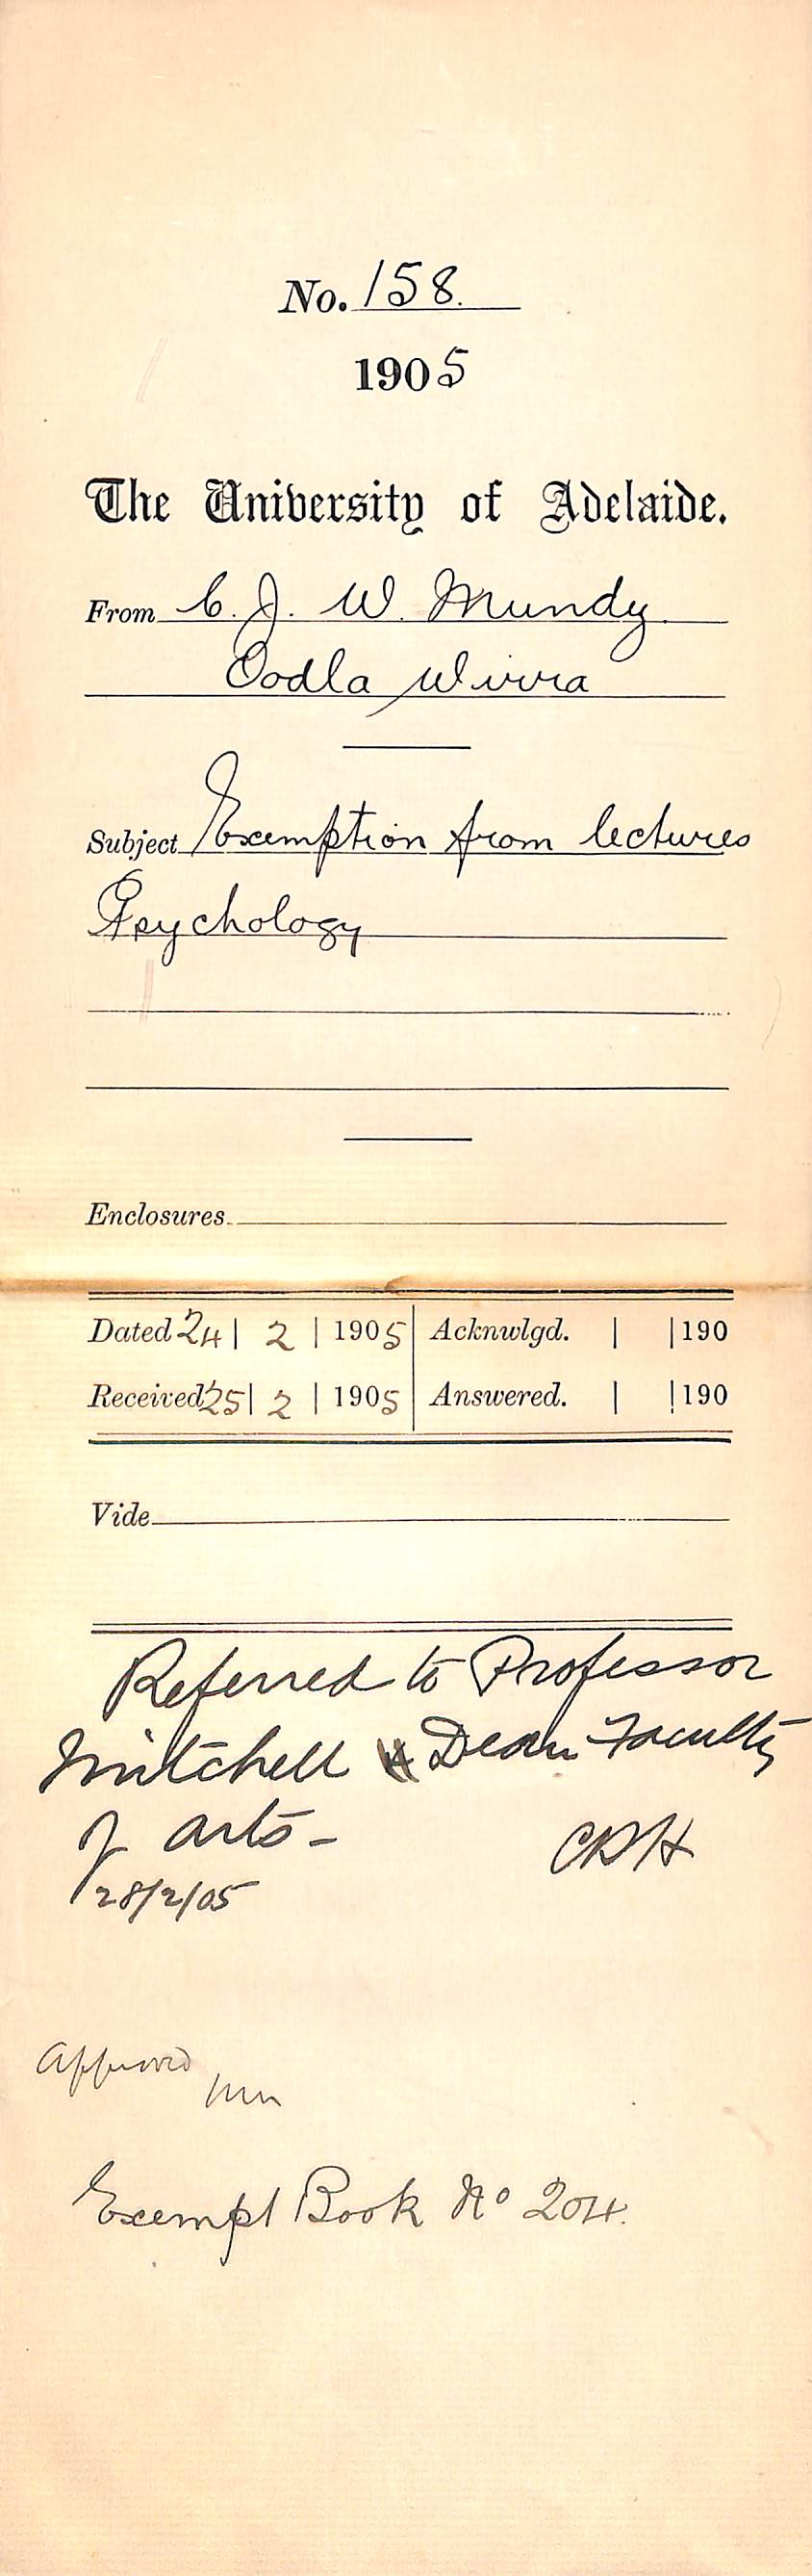 No. 158.
1905
The University of Adelaide.
From C. J. W. Mundy.
Oodla Wirra
Subject Exemption from lectures
Psychology
Enclosures
Dated 24 | 2 | 1905 Acknwlgd. | | 190
Received 25 | 2 | 1905 Answered. | | 190
Vide
Referred to Professor
Mitchell Dean Faculty
of Arts -
CRH
28/2/05
Approved
WM
Exempt Book No 204.